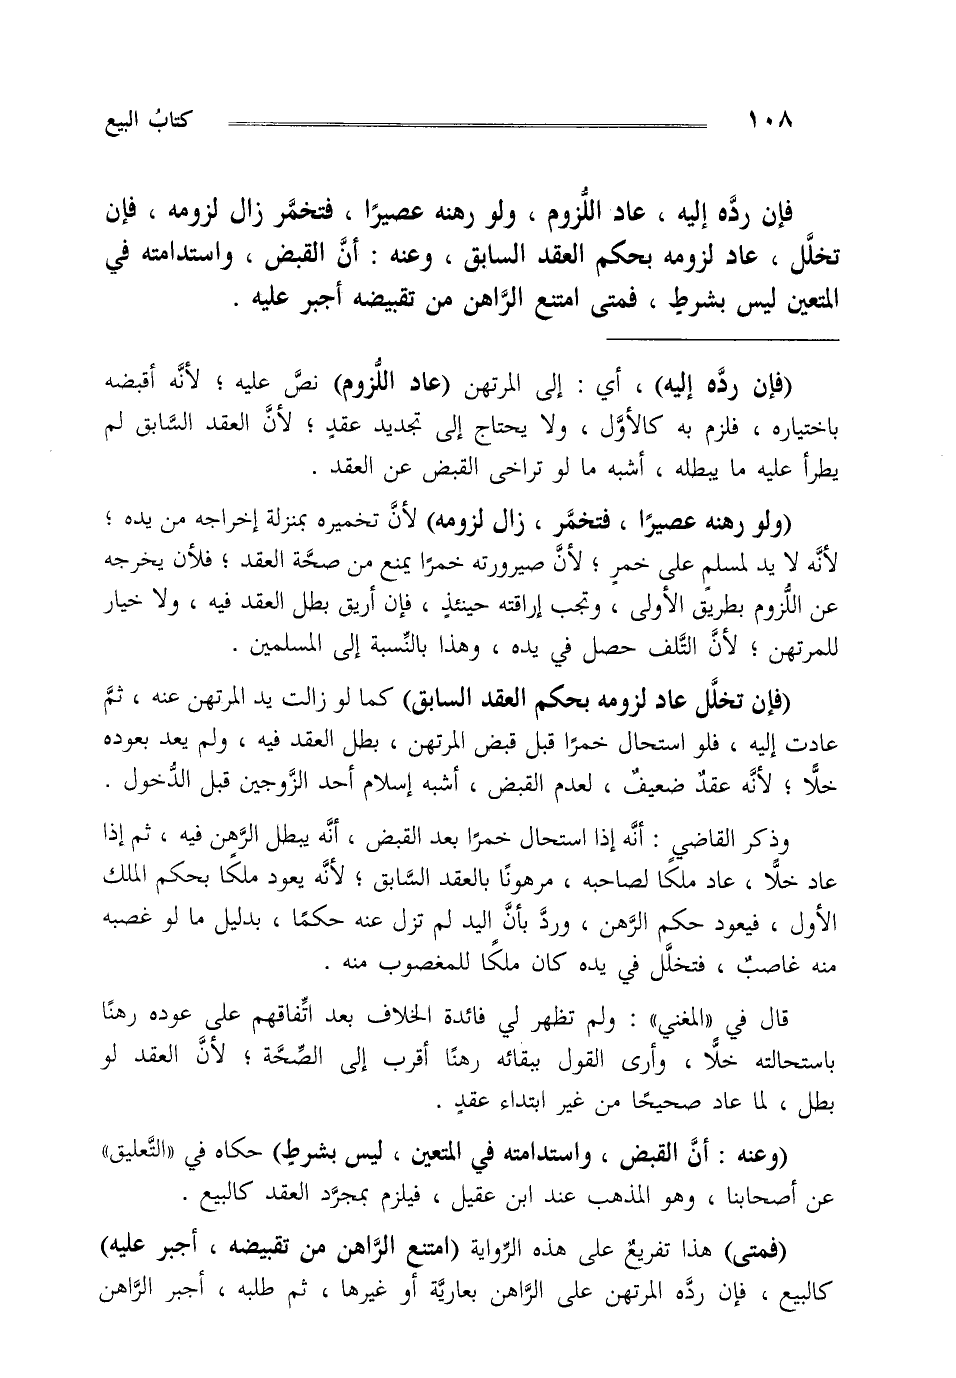 ١٠٨ كتابُ البيع
فإن ردَّه إليه ، عاد اللُّزوم ، ولو رهنه عصيرًا ، فتخمَّر زال لزومه ، فإن
تخلَّل ، عاد لزومه بحكم العقد السابق ، وعنه : أنَّ القبض ، واستدامته في
المتعين ليس بشرطٍ ، فمتى امتنع الرَّاهن من تقبيضه أجبر عليه .
(فإن ردَّه إليه) ، أي : إلى المرتهن (عاد اللُّزوم) نصَّ عليه ؛ لأنَّه أقبضه
باختياره ، فلزم به كالأوَّل ، ولا يحتاج إلى تجديد عقدٍ ؛ لأنَّ العقد السَّابق لم
يطرأ عليه ما يبطله ، أشبه ما لو تراخى القبض عن العقد .
(ولو رهنه عصيرًا ، فتخمَّر ، زال لزومه) لأنَّ تخميره بمنزلة إخراجه من يده ؛
لأنَّه لا يد لمسلمٍ على خمرٍ ؛ لأنَّ صيرورته خمرًا يمنع من صحَّة العقد ؛ فلأن يخرجه
عن اللُّزوم بطريق الأولى ، وتجب إراقته حينئذٍ ، فإن أريق بطل العقد فيه ، ولا خيار
للمرتهن ؛ لأنَّ التَّلف حصل في يده ، وهذا بالنِّسبة إلى المسلمين .
(فإن تخلَّل عاد لزومه بحكم العقد السابق) كما لو زالت يد المرتهن عنه ، ثمَّ
عادت إليه ، فلو استحال خمرًا قبل قبض المرتهن ، بطل العقد فيه ، ولم يعد بعوده
خلًّا ؛ لأنَّه عقدٌ ضعيفٌ ، لعدم القبض ، أشبه إسلام أحد الزَّوجين قبل الدُّخول .
وذكر القاضي : أنَّه إذا استحال خمرًا بعد القبض ، أنَّه يبطل الرَّهن فيه ، ثم إذا
عاد خلًّا ، عاد ملكًا لصاحبه ، مرهونًا بالعقد السَّابق ؛ لأنَّه يعود ملكًا بحكم الملك
الأول ، فيعود حكم الرَّهن ، وردَّ بأنَّ اليد لم تزل عنه حكمًا ، بدليل ما لو غصبه
منه غاصبٌ ، فتخلَّل في يده كان ملكًا للمغصوب منه .
قال في «المغني» : ولم تظهر لي فائدة الخلاف بعد اتِّفاقهم على عوده رهنًا
باستحالته خلًّا ، وأرى القول ببقائه رهنًا أقرب إلى الصِّحَّة ؛ لأنَّ العقد لو
بطل ، لما عاد صحيحًا من غير ابتداء عقدٍ .
(وعنه : أنَّ القبض ، واستدامته في المتعين ، ليس بشرطٍ) حكاه في «التَّعليق»
عن أصحابنا ، وهو المذهب عند ابن عقيل ، فيلزم بمجرَّد العقد كالبيع .
(فمتى) هذا تفريعٌ على هذه الرِّواية (امتنع الرَّاهن من تقبيضه ، أجبر عليه)
كالبيع ، فإن ردَّه المرتهن على الرَّاهن بعاريَّة أو غيرها ، ثم طلبه ، أجبر الرَّاهن